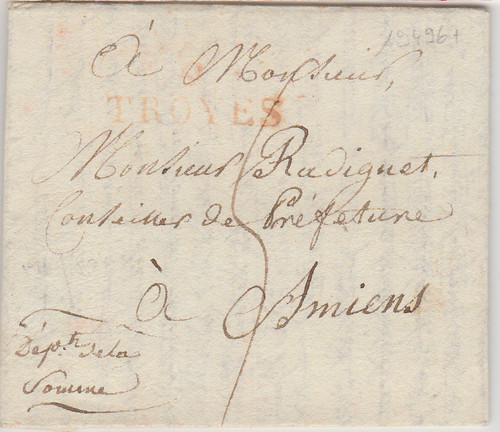 19496+
À Monsieur,
TROYES
Monsieur Radiguet,
Conseiller de Préfeture
à Amiens
Dép.t de la
Somme